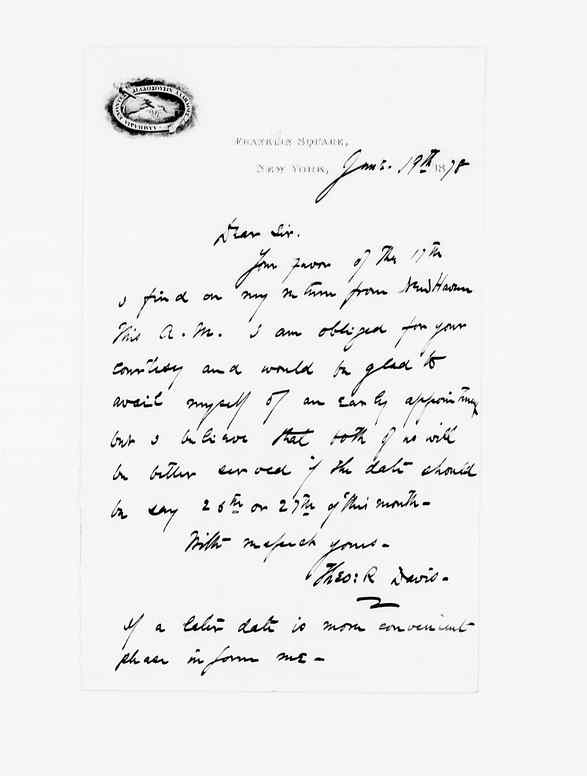 FRANKLIN SQUARE,
NEW YORK, June. 19th 1878
Dear Sir.
Your favor of the 17th
I find on my return from New Haven
this A.M. I am obliged for your
courtesy and would be glad to
avail myself of an early appointment
but I believe that both of us will
be better served if the date should
be say 26th or 27th of this month-
With respect yours-
Theo: R Davis-
If a later date is more convenient
please inform me-